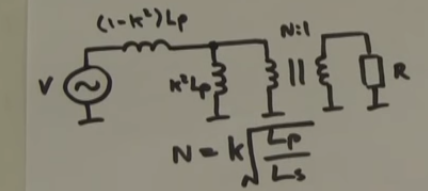 (1-k²)Lp
N:1
V
k²Lp
R
N = k√(Lp/Ls)